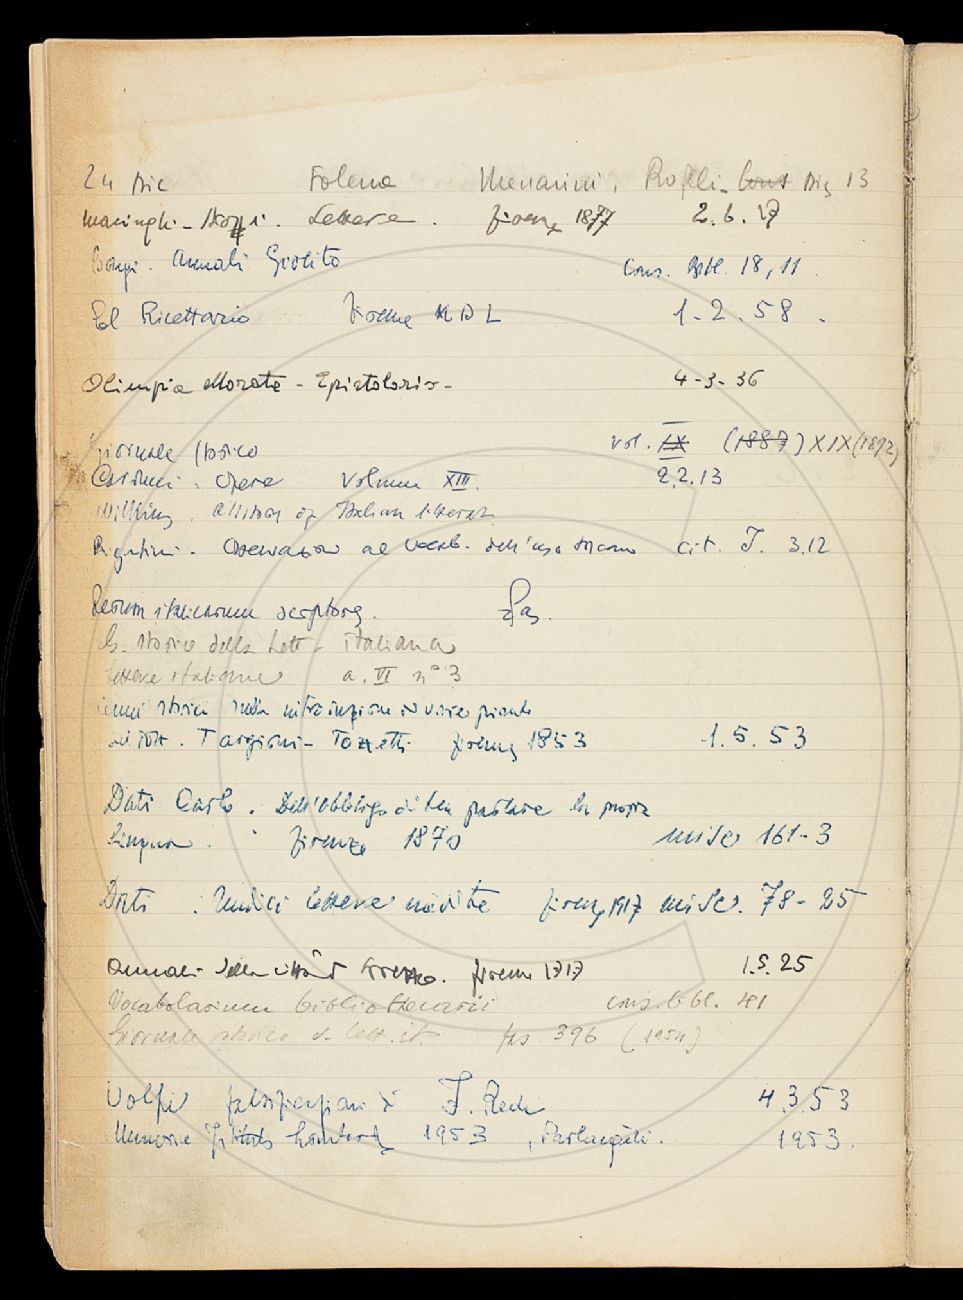 24 Dic Folena Menarini, Profili. Cons Diz 13
Macinghi-Strozzi. Lettere. Firenze 1877 2.6.17
Bongi. Annali Giolito Cons. Bibl. 18,11.
El Ricettario Firenze MDL 1-2.58.
Olimpia Morata - Epistolario - 4-3-36
Giornale storico vol. IX (1887) XIX (1892)
Carducci. Opere Volume XIII. 2.2.13
Wilkins. A History of Italian literat.
Rigutini. Osservazioni al vocab. dell'uso toscano cit. I. 3.12
Rerum italicarum scriptores. fas.
G. storico della Lett. italiana
Lettere italiane a. VI n° 3
Cenni storici sulla introduzione di varie piante
di Targioni-Tozzetti Firenze 1853 1.5.53
Dati Carlo. Dell'obbligo di ben parlare la propria
lingua. Firenze 1870 misc 161-3
Dati. Undici lettere inedite Firenze 1917 misc. 78-25
Annali della città d'Arezzo. Firenze 1717 1.5.25
Vocabolarium bibliothecarii cons. bibl. 481
Giornale storico d. lett. it. fas 396 (1954)
Volpi falsificazioni di F. Redi 4.3.53
Memorie Istituto Lombardo 1953, Parlangèli. 1953.